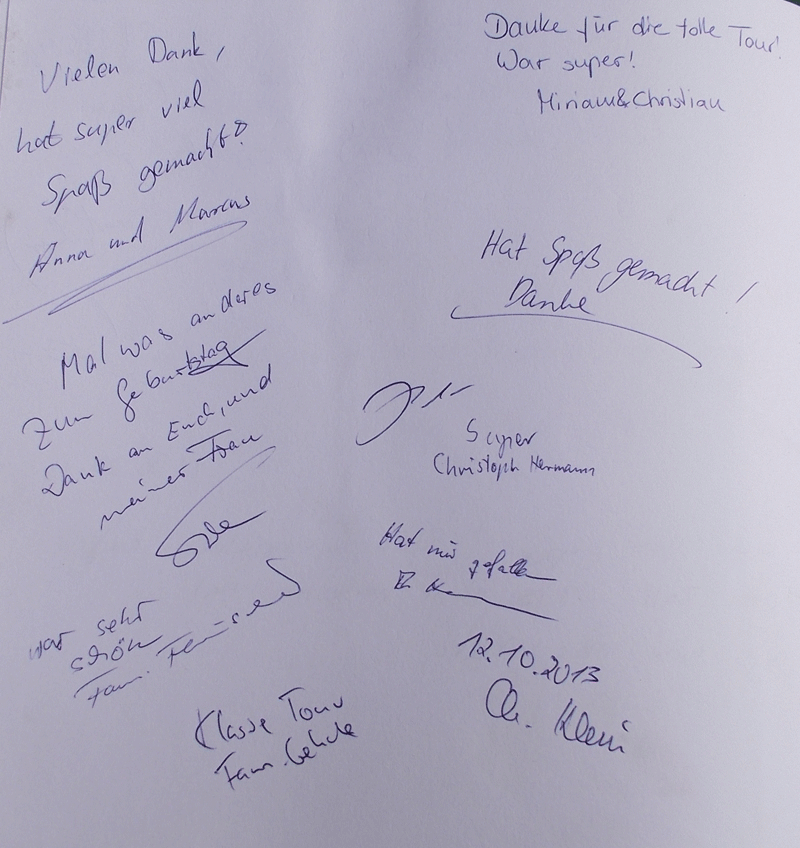 Vielen Dank,
hat super viel
Spaß gemacht!
Anna und Marcus
Mal was anderes
zum Geburtstag
Dank an Euch, und
meiner Frau
war sehr
schön
Fam.
Klasse Tour
Fam.
Danke für die tolle Tour!
War super!
Miriam & Christian
Hat Spaß gemacht!
Danke
Super
Christoph Hermann
Hat mir gefallen
12.10.2013
Ch. Klein